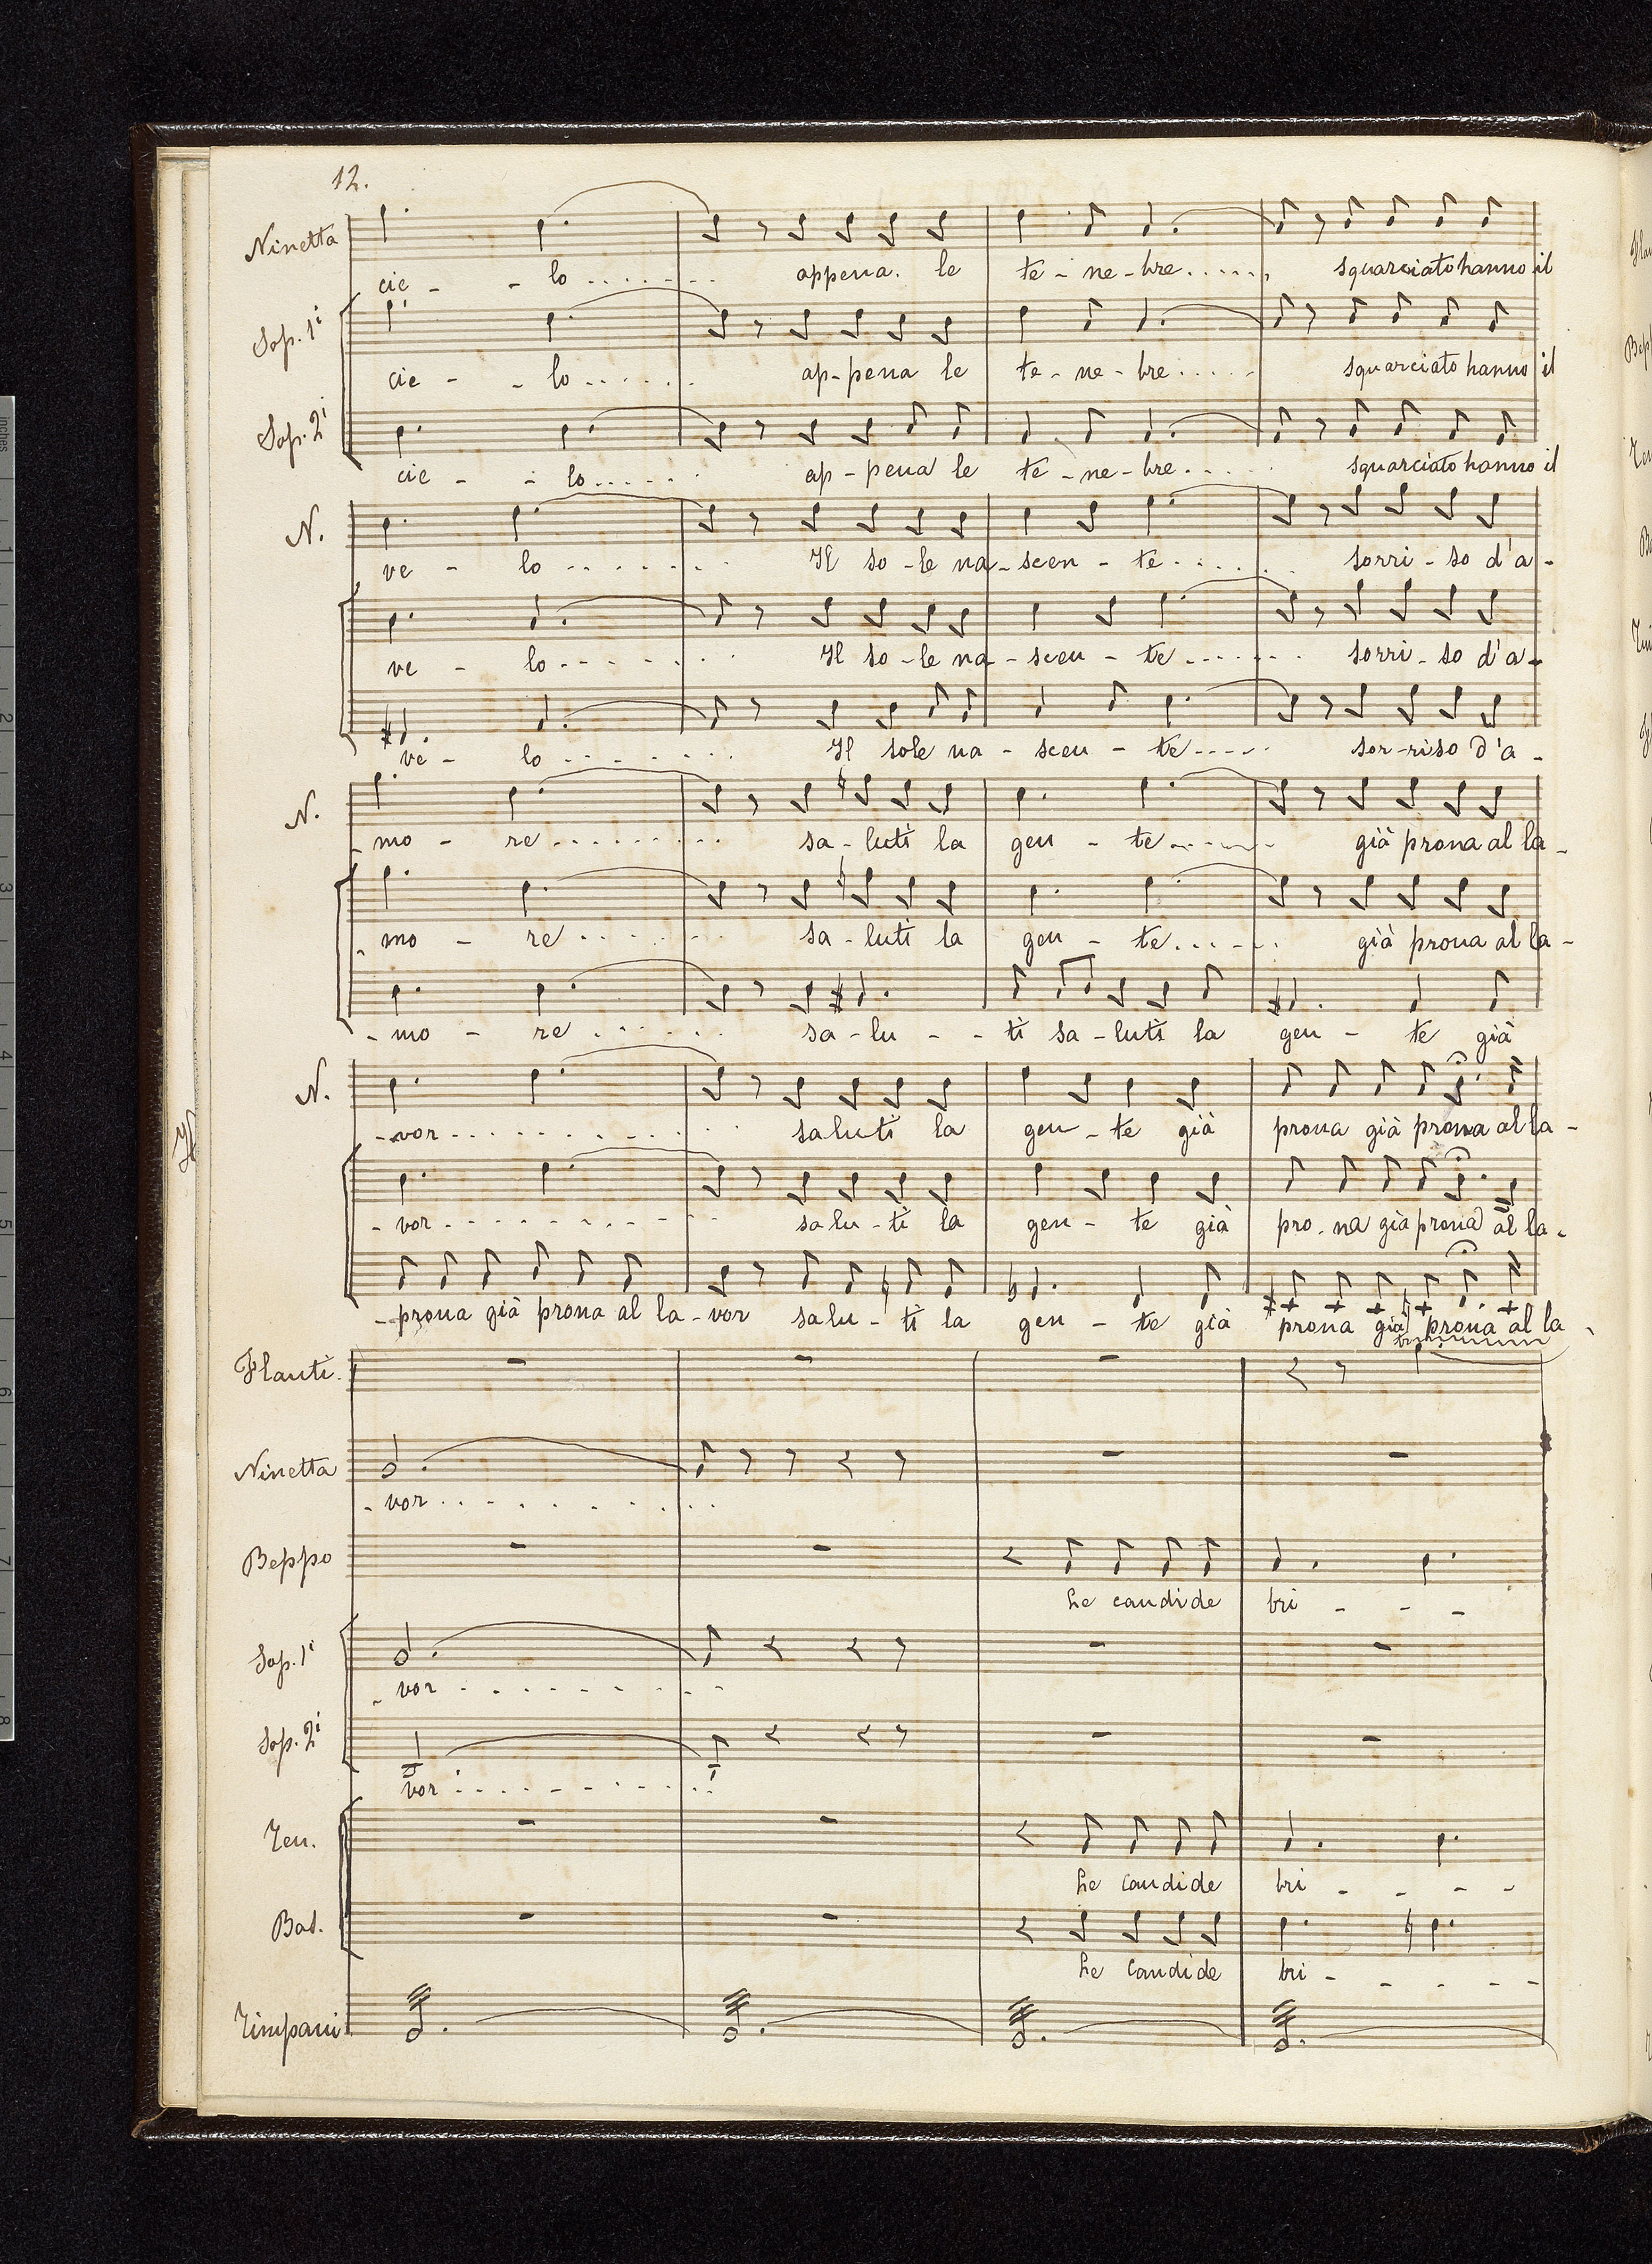 12.
Ninetta
cie - - lo . . . . . . . appena. le te - ne - bre . . . . . squarciato hanno il
Sop. 1i
cie - - lo . . . . . . ap - pena le te - ne - bre . . . . . squarciato hanno il
Sop. 2i
cie - - lo . . . . . . ap - pena le te - ne - bre . . . . . squarciato hanno il
N.
ve - lo . . . . . . . Il so - le na - scen - te . . . . . . sorri - so d'a -
ve - lo . . . . . . . Il so - le na - scen - te . . . . . . sorri - so d'a -
ve - lo . . . . . . . Il sole na - scen - te . . . . . sor - riso d'a -
N.
- mo - re . . . . . . . . . sa - luti la gen - te . . . . . . già prona al la -
- mo - re . . . . . . . sa - luti la gen - te . . . . . già prona al la -
- mo - re . . . . . . sa - lu - - ti sa - luti la gen - te già
N.
- vor . . . . . . . . . . . . saluti la gen - te già prona già prona al la -
- vor . . . . . . . . . . salu - ti la gen - te già pro - na già prona al la -
- prona già prona al la - vor salu - ti la gen - te già prona già prona al la -
Flauti.
tr
Ninetta
- vor . . . . . . . . .
Beppo
Le candide bri - - -
Sop. 1i
- vor . . . . . . . . .
Sop. 2i
vor . . . . . . . . .
Ten.
Le candide bri - - - -
Bas.
Le candide bri - - - - -
Timpani